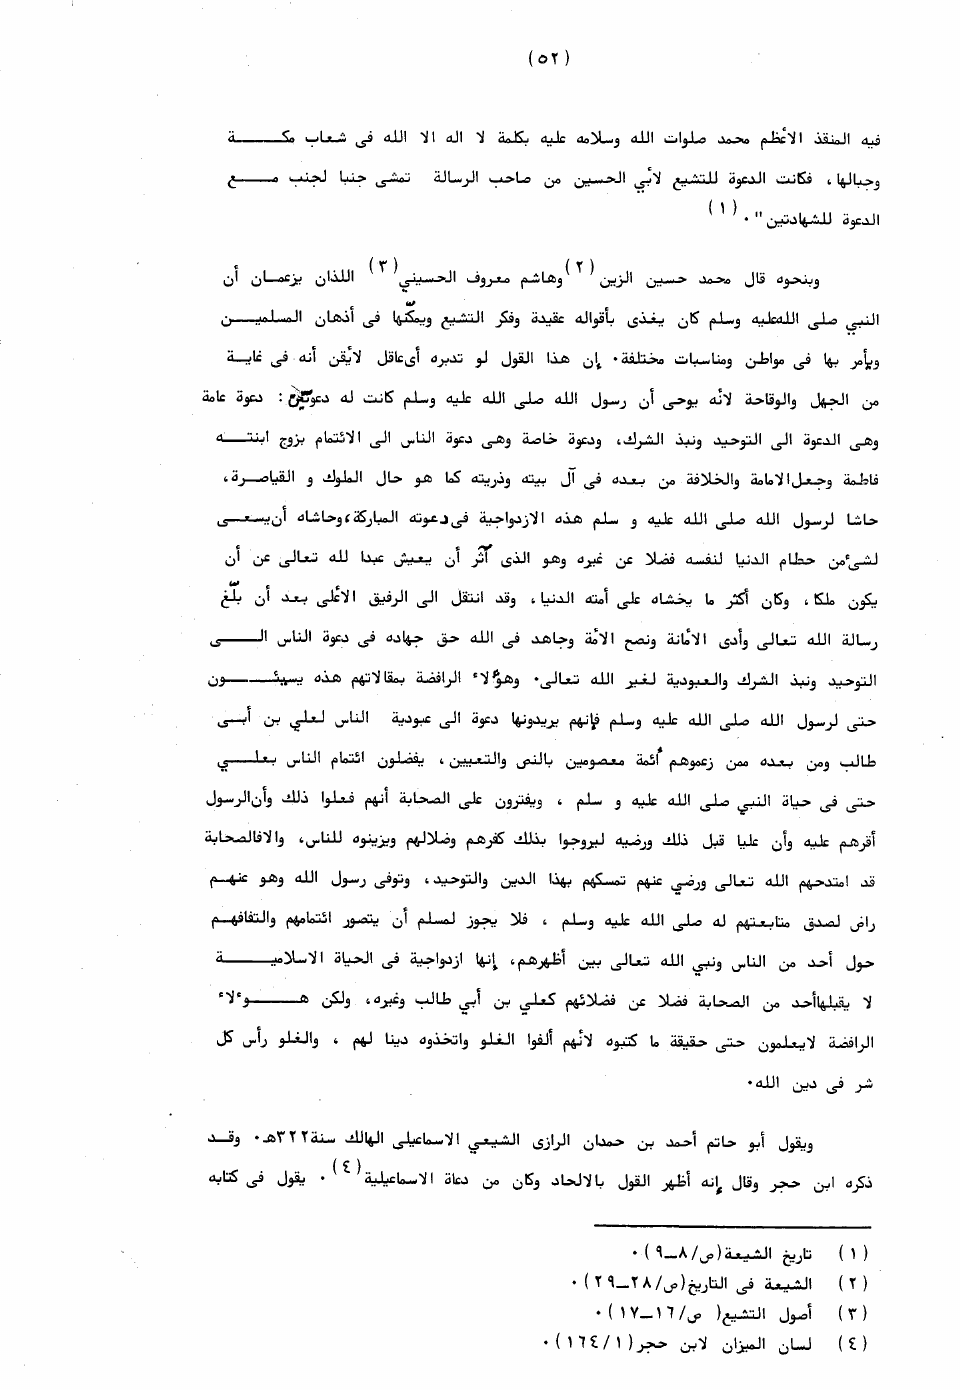 (٥٢)
فيه المنقذ الأعظم محمد صلوات الله وسلامه عليه بكلمة لا اله الا الله فى شعاب مكة
وجبالها، فكانت الدعوة للتشيع لأبي الحسين من صاحب الرسالة تمشى جنبا لجنب مع
الدعوة للشهادتين"٠(١)
وبنحوه قال محمد حسين الزين(٢)وهاشم معروف الحسيني(٣) اللذان يزعمان أن
النبي صلى الله عليه وسلم كان يغذى بأقواله عقيدة وفكر التشيع ويمكّنها فى أذهان المسلمين
ويأمر بها فى مواطن ومناسبات مختلفة٠ إن هذا القول لو تدبره أى عاقل لأيقن أنه فى غاية
من الجهل والوقاحة لأنه يوحى أن رسول الله صلى الله عليه وسلم كانت له دعوتين: دعوة عامة
وهى الدعوة الى التوحيد ونبذ الشرك، ودعوة خاصة وهى دعوة الناس الى الائتمام بزوج ابنته
فاطمة وجعل الامامة والخلافة من بعده فى آل بيته وذريته كما هو حال الملوك و القياصرة،
حاشا لرسول الله صلى الله عليه و سلم هذه الازدواجية فى دعوته المباركة، وحاشاه أن يسعى
لشىء من حطام الدنيا لنفسه فضلا عن غيره وهو الذى آثر أن يعيش عبدا لله تعالى عن أن
يكون ملكا، وكان أكثر ما يخشاه على أمته الدنيا، وقد انتقل الى الرفيق الأعلى بعد أن بلّغ
رسالة الله تعالى وأدى الأمانة ونصح الأمة وجاهد فى الله حق جهاده فى دعوة الناس الى
التوحيد ونبذ الشرك والعبودية لغير الله تعالى٠ وهؤلاء الرافضة بمقالاتهم هذه يسيئون
حتى لرسول الله صلى الله عليه وسلم فإنهم يريدونها دعوة الى عبودية الناس لعلي بن أبى
طالب ومن بعده ممن زعموهم أئمة معصومين بالنص والتعيين، يفضلون ائتمام الناس بعلي
حتى فى حياة النبي صلى الله عليه و سلم ، ويفترون على الصحابة أنهم فعلوا ذلك وأن الرسول
أقرهم عليه وأن عليا قبل ذلك ورضيه ليروجوا بذلك كفرهم وضلالهم ويزينوه للناس، والا فالصحابة
قد امتدحهم الله تعالى ورضي عنهم تمسكهم بهذا الدين والتوحيد، وتوفى رسول الله وهو عنهم
راض لصدق متابعتهم له صلى الله عليه وسلم ، فلا يجوز لمسلم أن يتصور ائتمامهم والتفافهم
حول أحد من الناس ونبي الله تعالى بين أظهرهم، إنها ازدواجية فى الحياة الاسلامية
لا يقبلها أحد من الصحابة فضلا عن فضلائهم كعلي بن أبي طالب وغيره، ولكن هؤلاء
الرافضة لايعلمون حتى حقيقة ما كتبوه لأنهم ألفوا الغلو واتخذوه دينا لهم ، والغلو رأس كل
شر فى دين الله٠
ويقول أبو حاتم أحمد بن حمدان الرازى الشيعي الاسماعيلى الهالك سنة ٣٢٢هـ٠ وقد
ذكره ابن حجر وقال إنه أظهر القول بالالحاد وكان من دعاة الاسماعيلية(٤)٠ يقول فى كتابه
(١) تاريخ الشيعة(ص/٨ــ٩)٠
(٢) الشيعة فى التاريخ(ص/٢٨ــ٢٩)٠
(٣) أصول التشيع( ص/١٦ــ١٧)٠
(٤) لسان الميزان لابن حجر(١٦٤/١)٠